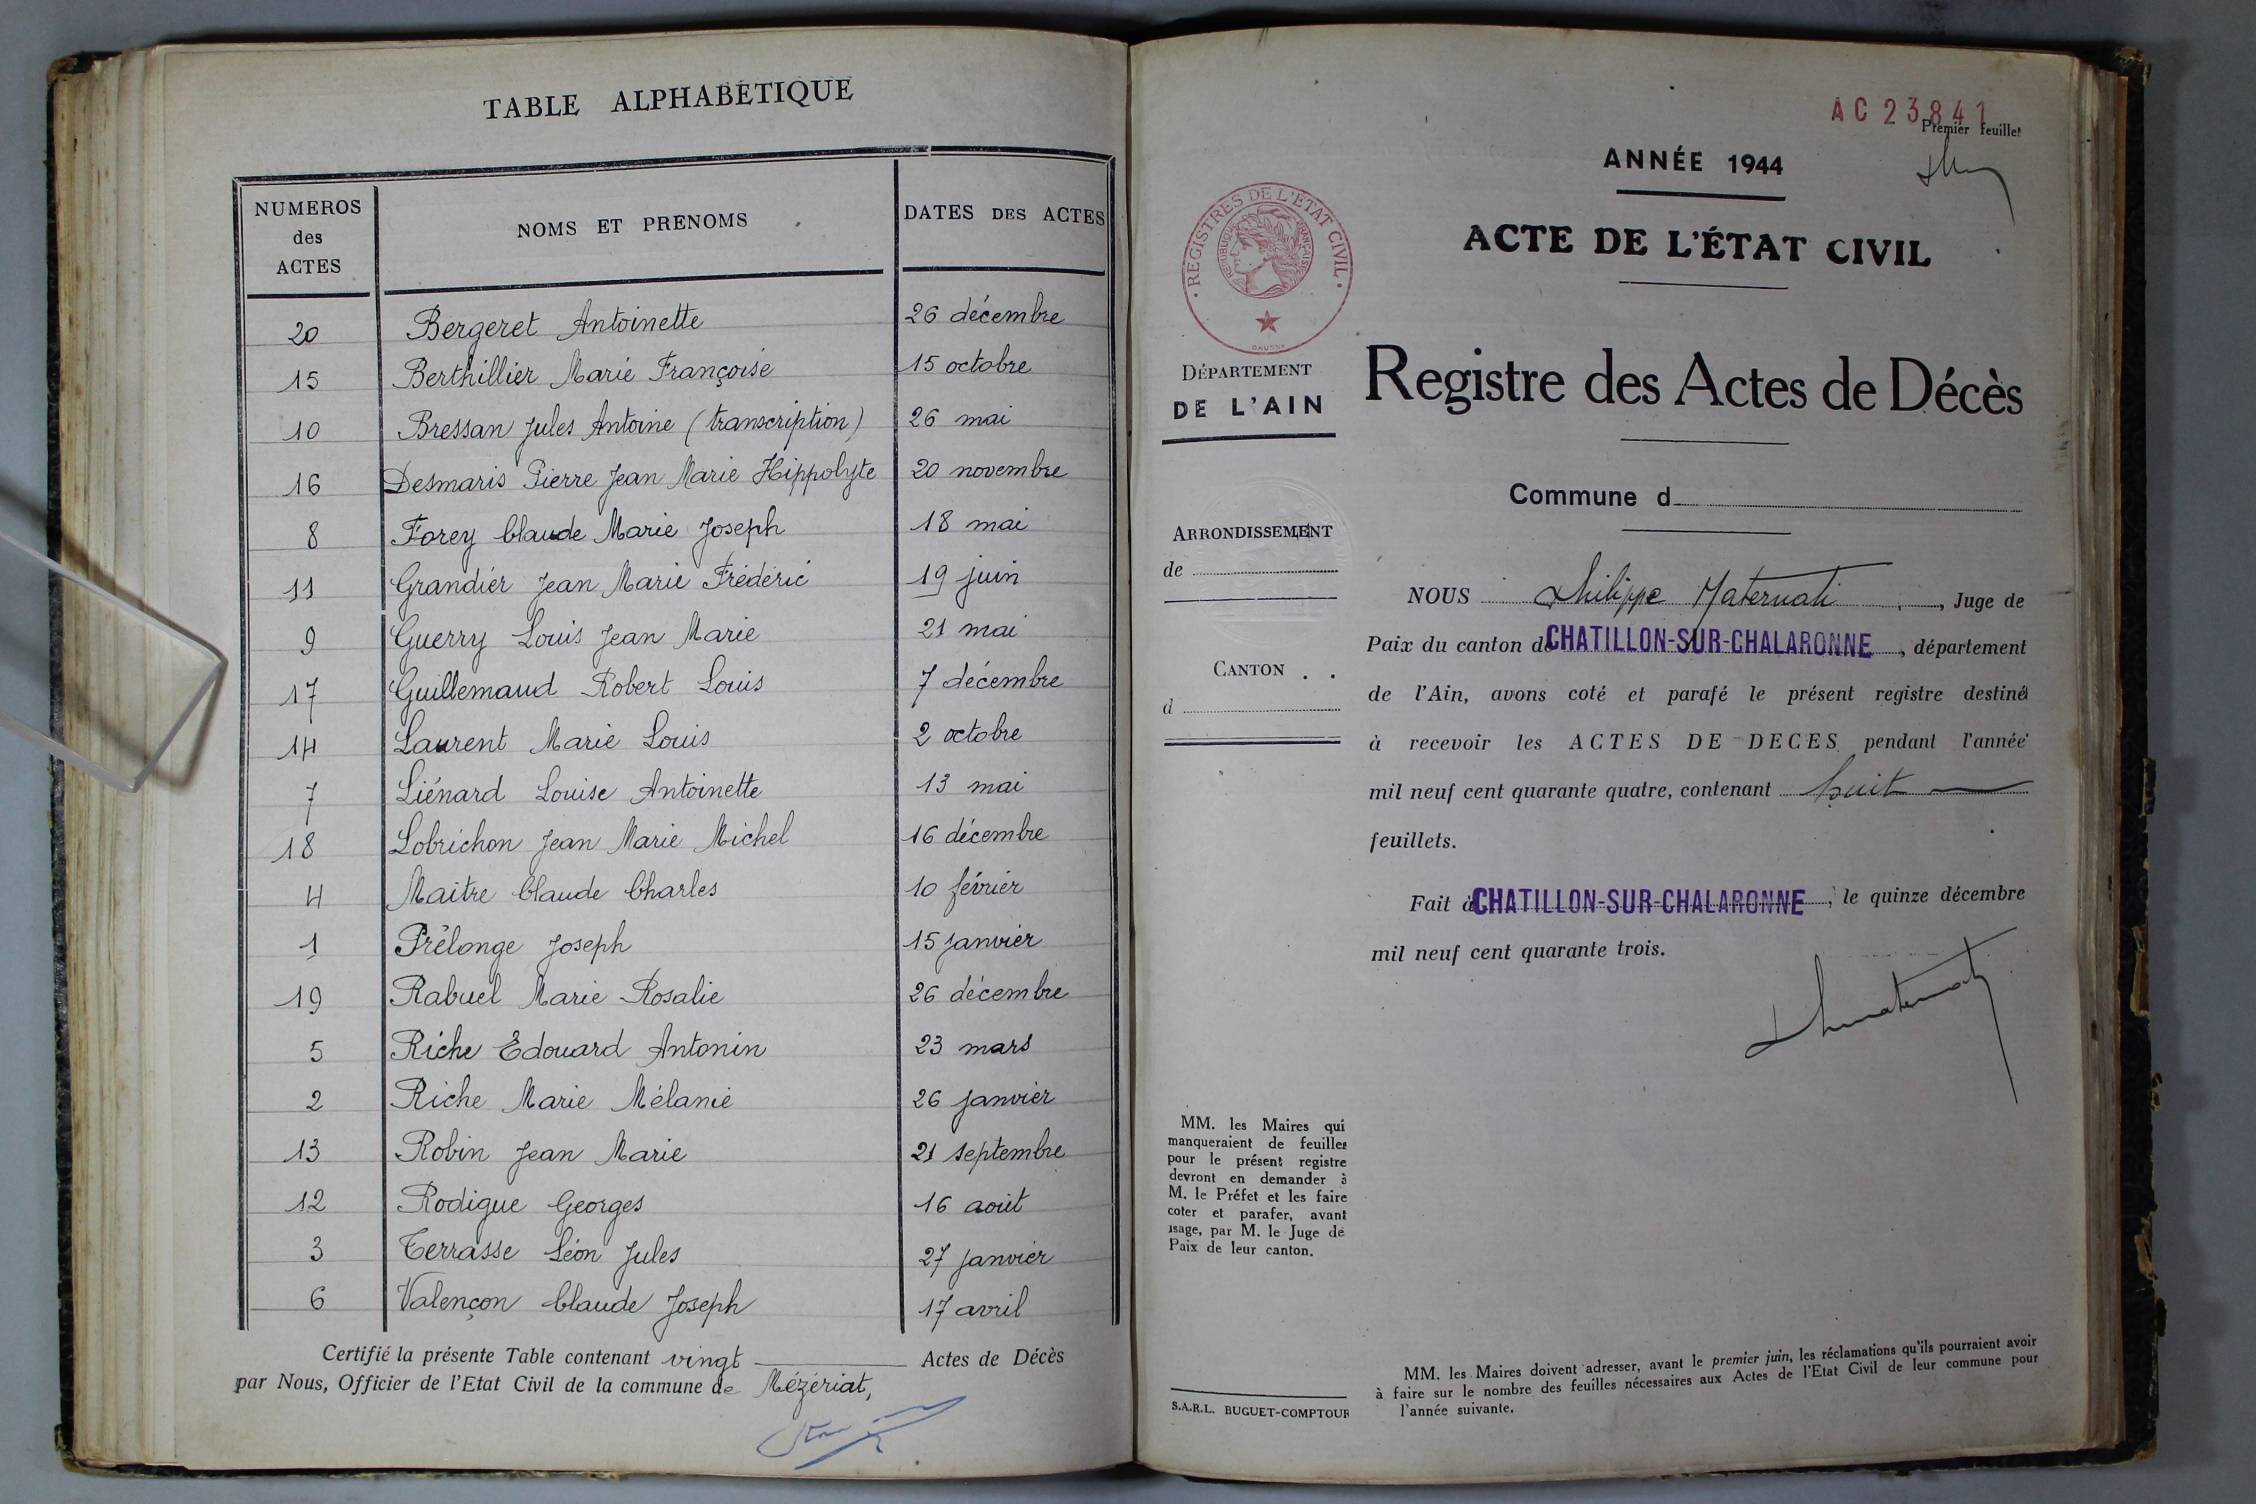 TABLE ALPHABÉTIQUE
NUMEROS des ACTES NOMS ET PRENOMS DATES DES ACTES
20 Bergeret Antoinette 26 décembre
15 Berthillier Marie Françoise 15 octobre
10 Bressan Jules Antoine (transcription) 26 mai
16 Desmaris Pierre Jean Marie Hippolyte 20 novembre
8 Forey Claude Marie Joseph 18 mai
11 Grandier Jean Marie Frédéric 19 juin
9 Guerry Louis Jean Marie 21 mai
17 Guillemaud Robert Louis 7 décembre
14 Laurent Marie Louis 2 octobre
7 Liénard Louise Antoinette 13 mai
18 Lobrichon Jean Marie Michel 16 décembre
4 Maitre Claude Charles 10 février
1 Prêlonge Joseph 15 janvier
19 Rabuel Marie Rosalie 26 décembre
5 Riche Edouard Antonin 23 mars
2 Riche Marie Mélanie 26 janvier
13 Robin Jean Marie 21 septembre
12 Rodigue Georges 16 août
3 Terrasse Léon Jules 27 janvier
6 Valençon Claude Joseph 17 avril
Certifié la présente Table contenant vingt Actes de Décès
par Nous, Officier de l'Etat Civil de la commune de Mézériat,
AC 23841
Premier feuillet
ANNÉE 1944
ACTE DE L'ÉTAT CIVIL
REGISTRES DE L'ETAT CIVIL
REPUBLIQUE FRANÇAISE
DÉPARTEMENT
DE L'AIN
Registre des Actes de Décès
Commune d
ARRONDISSEMENT
de
CANTON
d
NOUS Philippe Maternati, Juge de
Paix du canton de CHATILLON-SUR-CHALARONNE, département
de l'Ain, avons coté et parafé le présent registre destiné
à recevoir les ACTES DE DECES pendant l'année
mil neuf cent quarante quatre, contenant huit
feuillets.
Fait à CHATILLON-SUR-CHALARONNE, le quinze décembre
mil neuf cent quarante trois.
MM. les Maires qui
manqueraient de feuilles
pour le présent registre
devront en demander à
M. le Préfet et les faire
coter et parafer, avant
usage, par M. le Juge de
Paix de leur canton.
S.A.R.L. BUGUET-COMPTOUR
MM. les Maires doivent adresser, avant le premier juin, les réclamations qu'ils pourraient avoir
à faire sur le nombre des feuilles nécessaires aux Actes de l'Etat Civil de leur commune pour
l'année suivante.